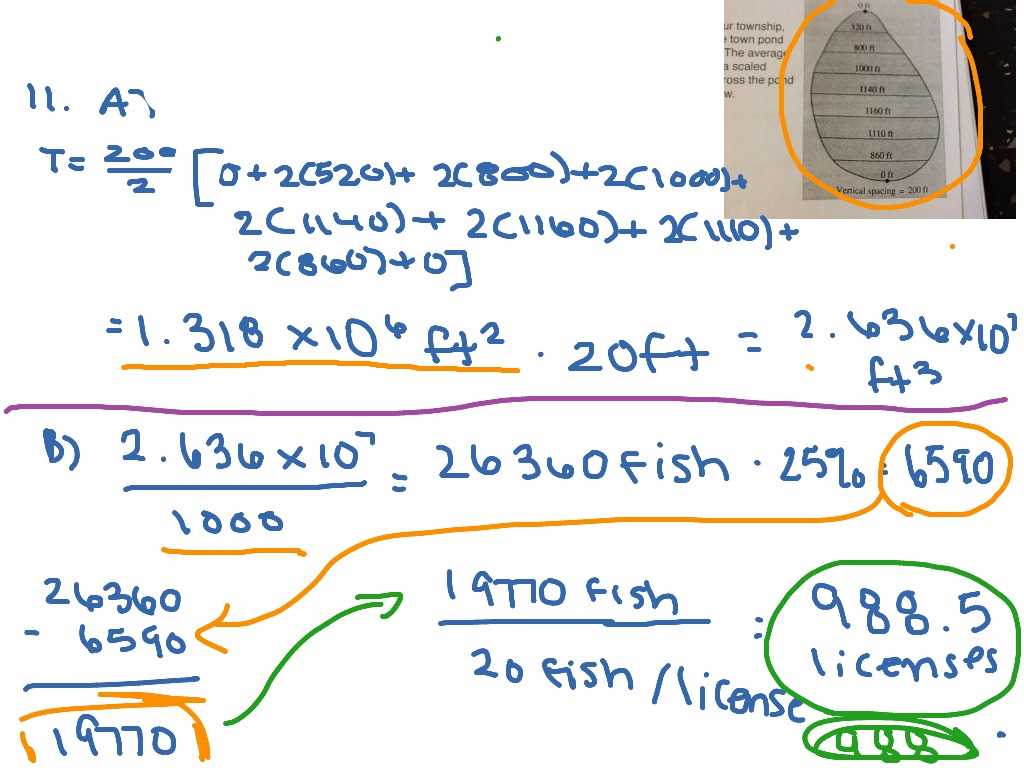 ur township,
town pond
The average
a scaled
ross the pond
w.
0 ft
520 ft
800 ft
1000 ft
1140 ft
1160 ft
1110 ft
860 ft
0 ft
Vertical spacing = 200 ft
11. A)
T= 200/2 [0+2(520)+ 2(800)+2(1000)+
2(1140)+ 2(1160)+ 2(1110)+
2(860)+0]
=1.318 ×10⁶ ft² · 20ft = 2.636×10⁷
ft3
B) 2.636×10⁷
1000
= 26360 fish · 25% = 6590
26360
- 6590
19770
19770 fish
20 fish/license
= 988.5
licenses
988